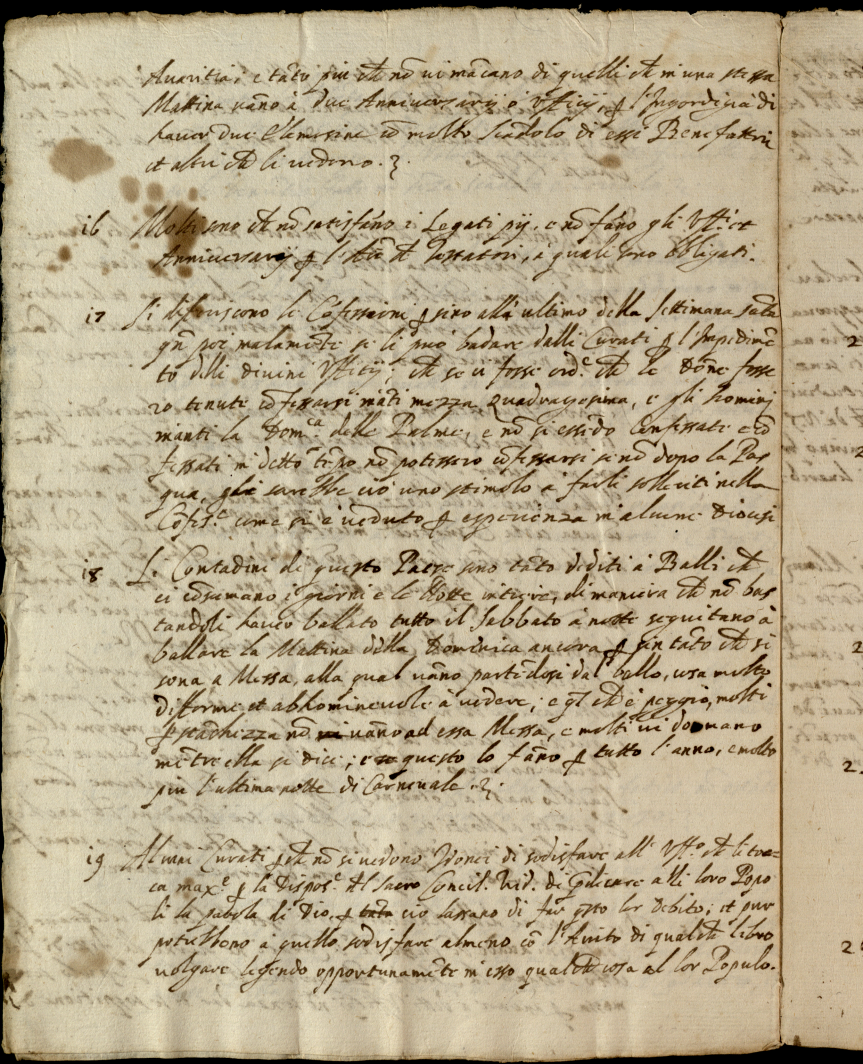 Avaritia; e tãto piu ch̃ nõ vi mãcano di quelli ch̃ in una stessa
Mattina vãno à due Anniversarij ò Ufficij, ꝑ l'Ingordigia di
haver due Elemosine cõ molto Scãdolo di essi Benefattori
et altri ch̃ li vedono.
16 Molti sono ch̃ nõ satisfãno i Legati pij, e nõ fãno gli Uff.i et
Anniversarij ꝑ l'Aĩe d̃ Testatori, à quali sono obligati.
17 Si differiscono le Cõfessioni ꝑ sino all'ultimo della Settimana Sãta
qñ poi malamẽte se li può badare dalli Curati ꝑ l'Impedimẽ
to delli divini Ufficij; ch̃ se vi fosse ord.e ch̃ le Dõne fosse
ro tenute cõfessarsi inãti mezza Quadragesima, e gli homini
inanti la Dom.ca delle Palme, e nõ si essẽdo Confessati e cõ
fessati in detto tẽpo nõ potessero cõfessarsi se nõ dopo la Pas
qua, sarebbe ciò uno stimolo à farli solleciti nella
Cõfes.e come si è veduto ꝑ esperienza in alcune Diocesi
18 Li Contadini di questo Paese sono tãto dediti à Balli ch̃
ci cõsumano i giorni e le Notte intiere, di maniera ch̃ nõ bas
tandoli haver ballato tutto il Sabbato à notte seguitano à
ballare la Mattina della Dominica ancora ꝑ sin tãto ch̃ si
sona a Messa, alla qual vãno partẽdosi dal ballo, cosa molto
difforme et abhominevole à vedere; e q̃l ch̃ è peggio, molti
ꝑ strachezza nõ vãno ad essa Messa, e molti vi dormano
mẽtre ella si dice; e questo lo fãno ꝑ tutto l'anno, e molto
piu l'ultima notte di Carnevale.
19 Alcuni Curati ꝑch̃ nõ si vedono Idonei di sodisfare all'Uff.o ch̃ li toc=
ca max.e ꝑ la Dispos.e del Sacro Concil. Trid. di explicare alli loro Popo
li la parola di Dio, ꝑ ciò lassano di far q̃sto lor Debito; et pur
potrebbono à quello sodisfare almeno cõ l'Aiuto di qualch̃ libro
volgare legendo opportunamẽte in esso qualch̃ cosa al lor Populo.